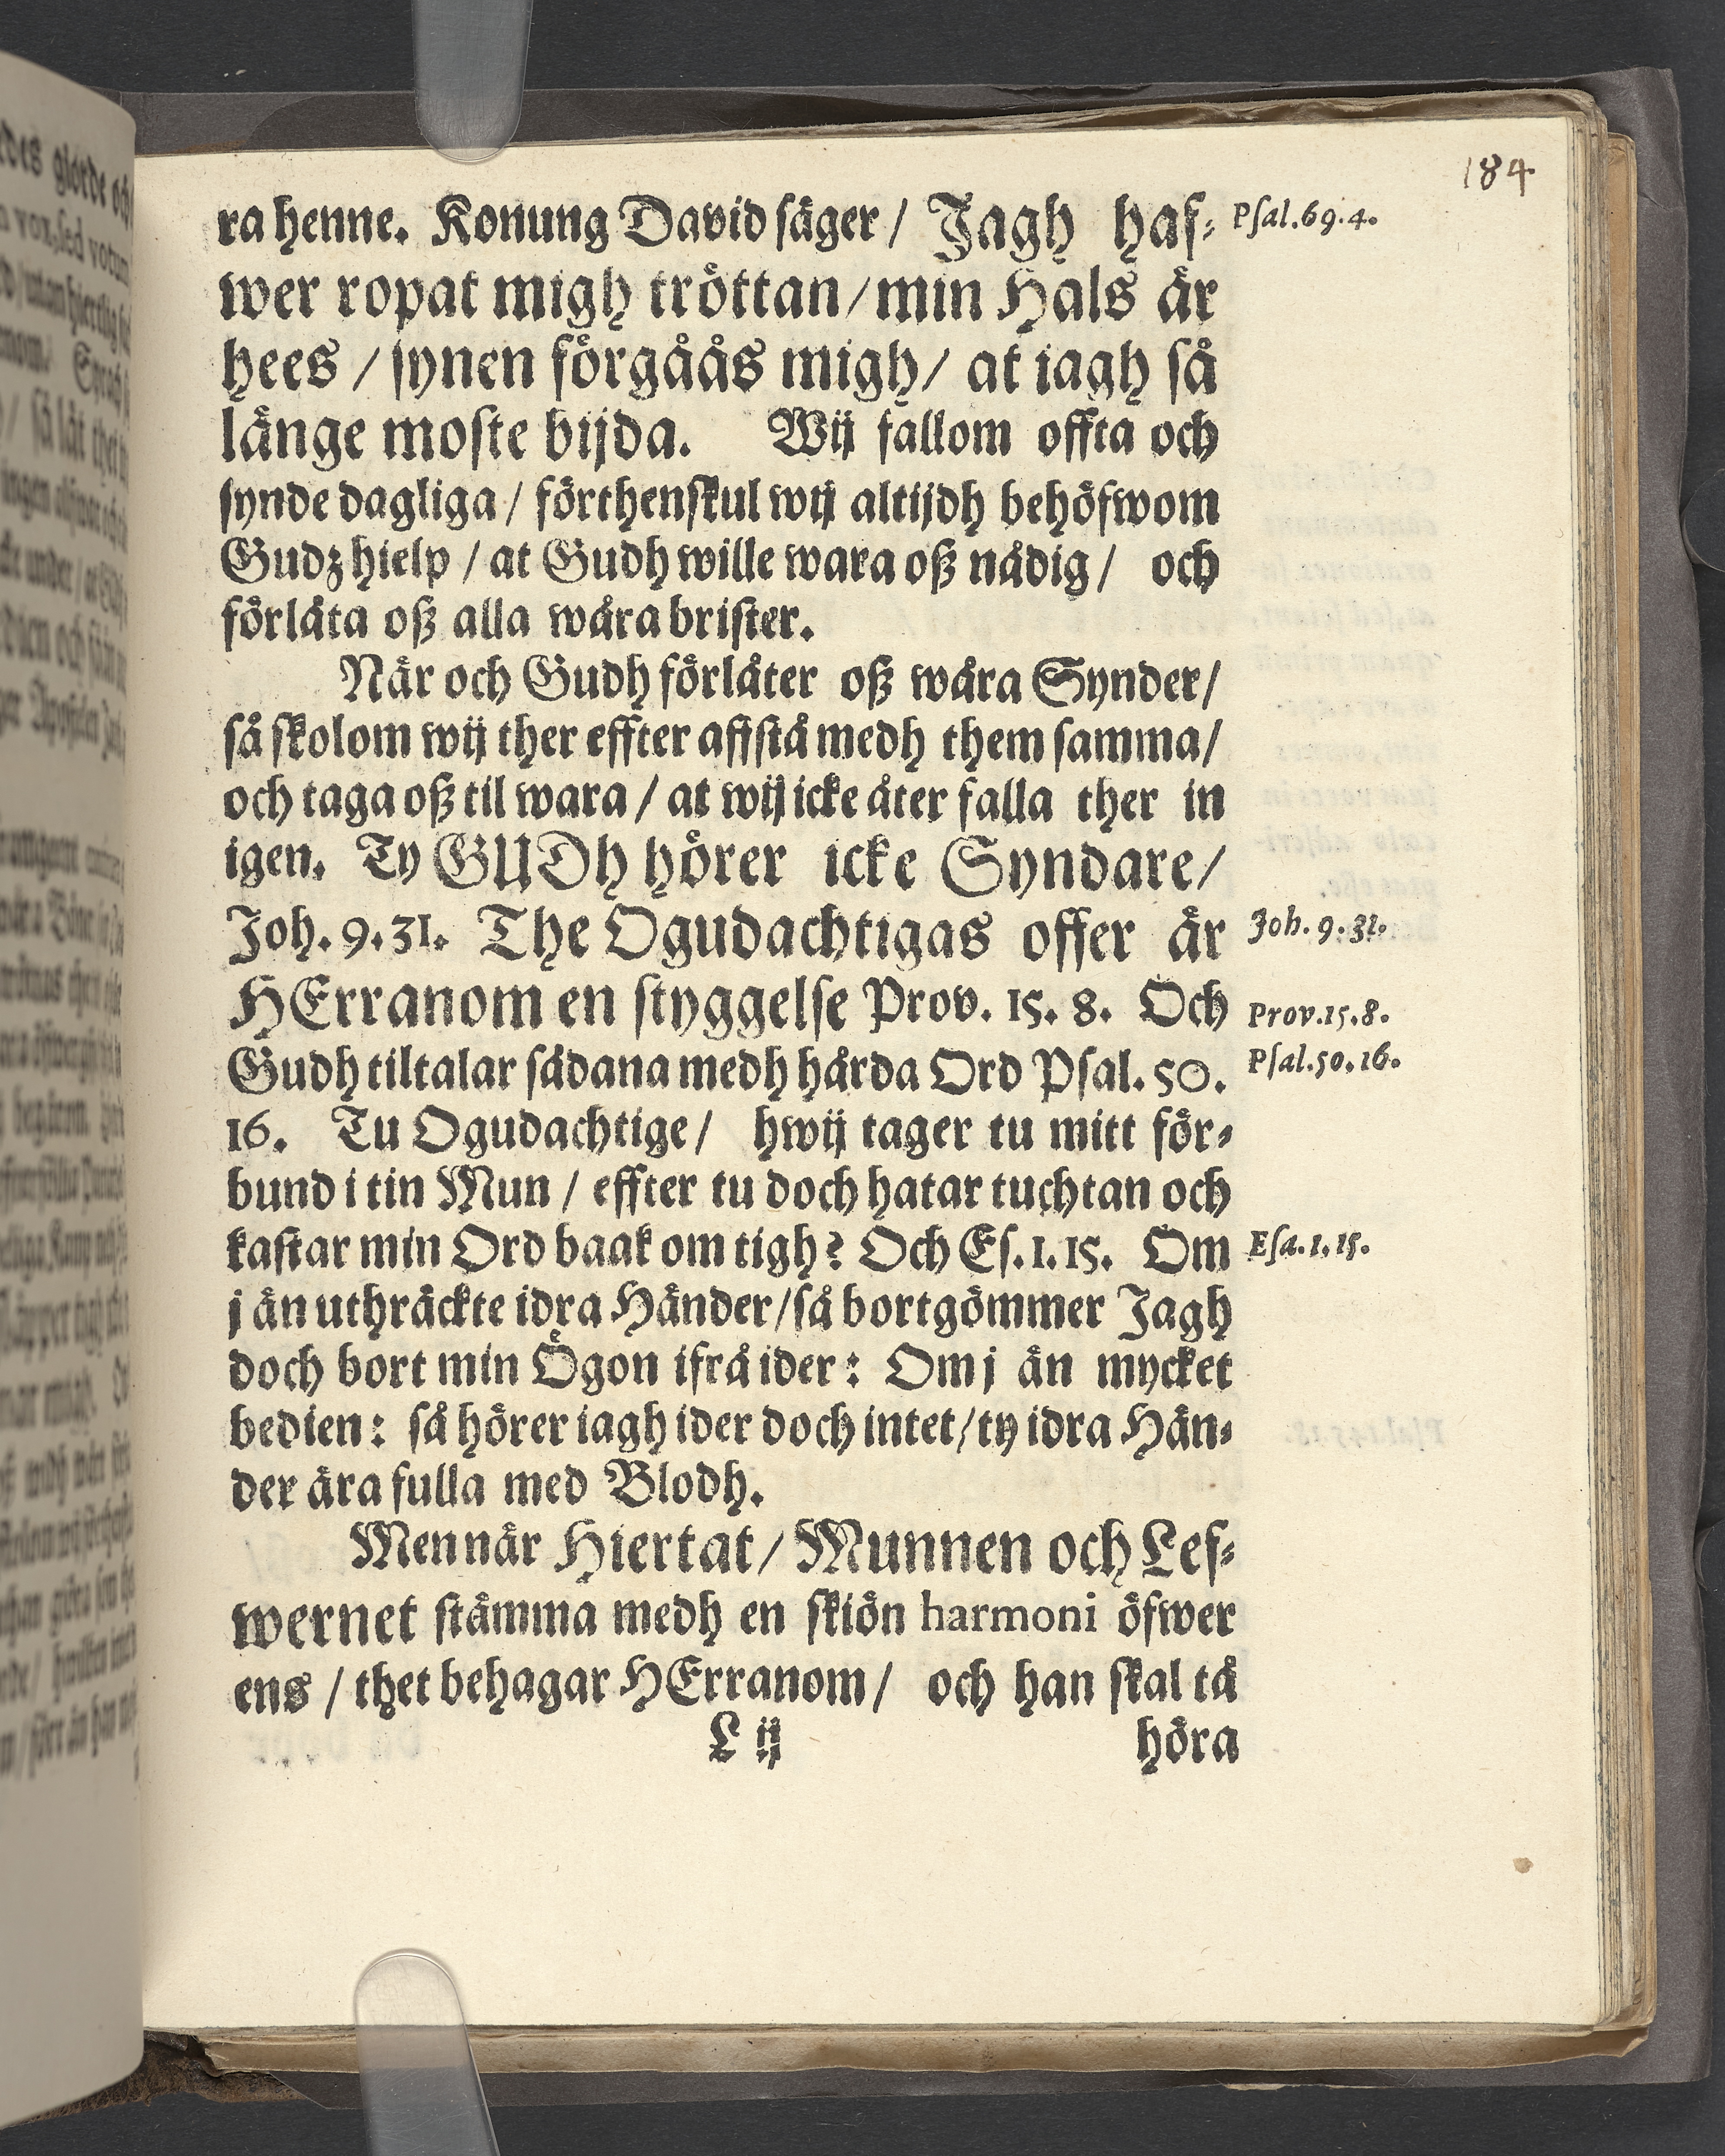 184
ra henne. Konung David säger / Jagh haf- Psal.69.4.
wer ropat migh tröttan / min Hals är
hees / synen förgåås migh / at iagh så
länge moste bijda. Wij fallom offta och
synde dagliga / förthenskul wij altijdh behöfwom
Gudz hielp / at Gudh wille wara oß nådig / och
förlåta oß alla wåra brister.
När och Gudh förlåter oß wåra Synder /
så skolom wij ther effter affstå medh them samma /
och taga oß til wara / at wij icke åter falla ther in
igen. Ty GUDh hörer icke Syndare /
Joh. 9. 31. The Ogudachtigas offer är Joh. 9. 31.
HErranom en styggelse Prov. 15. 8. Och Prov.15.8.
Gudh tiltalar sådana medh hårda Ord Psal. 50. Psal.50.16.
16. Tu Ogudachtige / hwij tager tu mitt för-
bund i tin Mun / effter tu doch hatar tuchtan och
kastar min Ord baak om tigh? Och Es. 1. 15. Om Esa.1.15.
j än uthräckte idra Händer / så bortgömmer Jagh
doch bort min Ögon ifrå ider: Om j än mycket
bedien: så hörer iagh ider doch intet / ty idra Hän-
der ära fulla med Blodh.
Men när Hiertat / Munnen och Lef-
wernet stämma medh en skiön harmoni öfwer
ens / thet behagar HErranom / och han skal tå
L ij höra